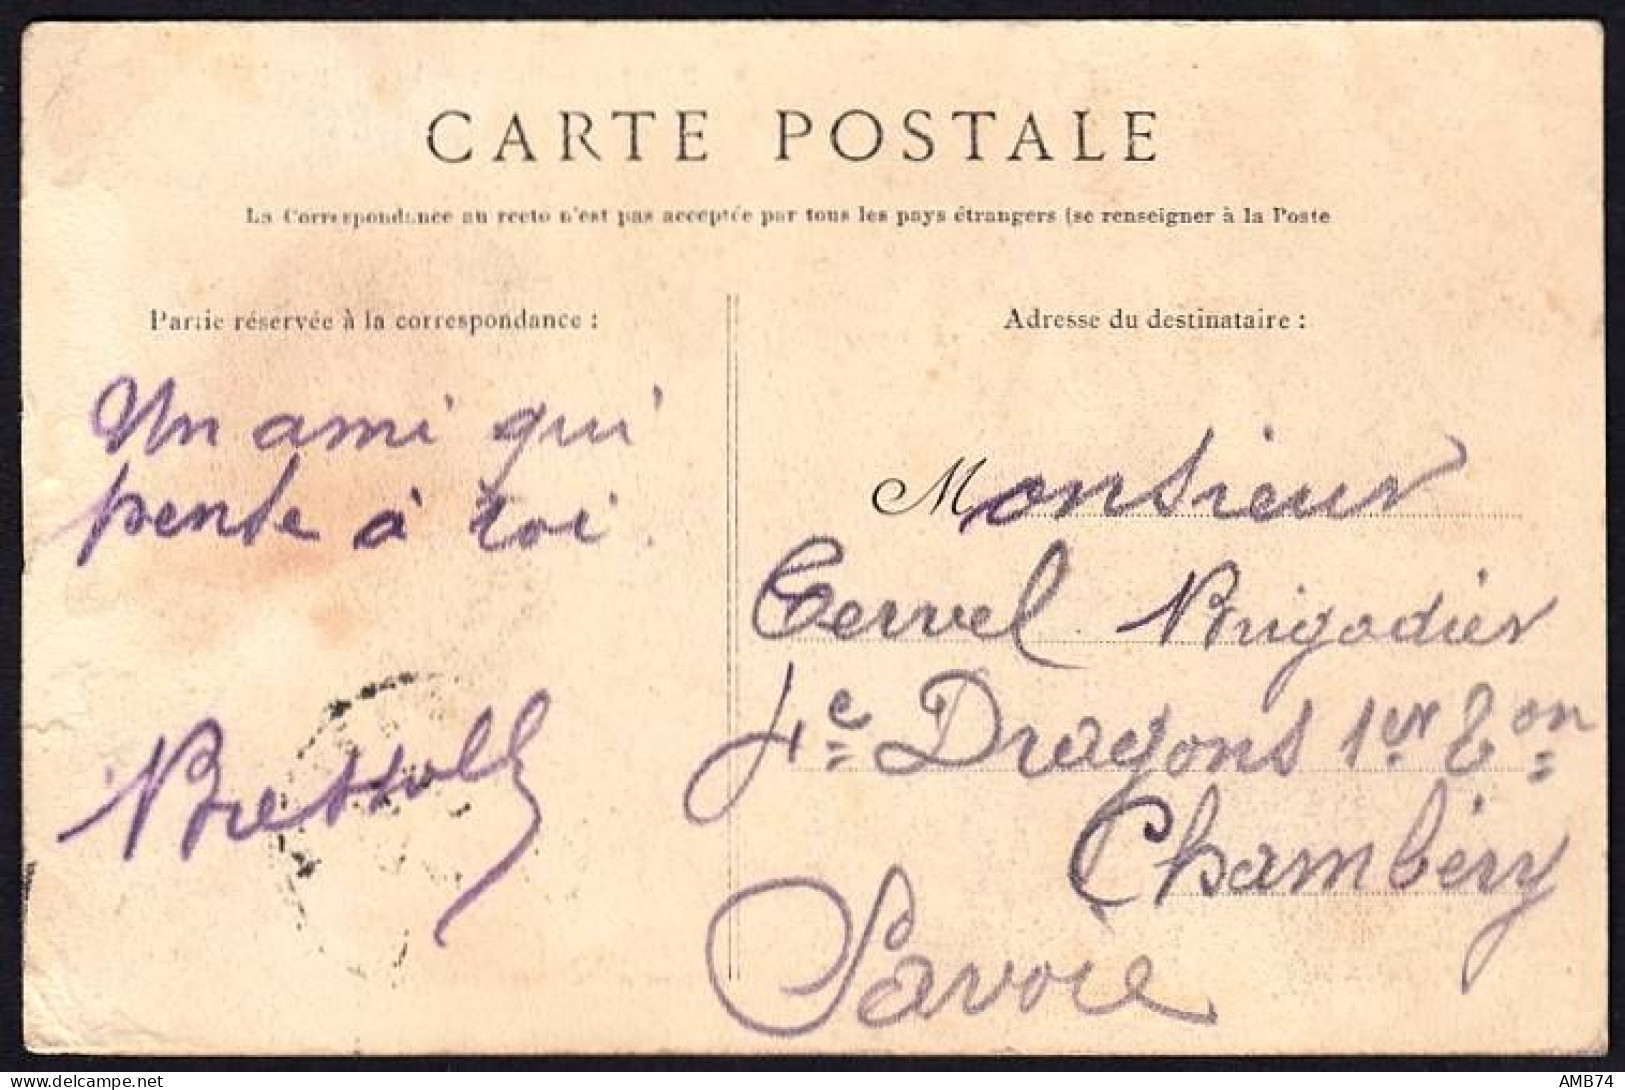 CARTE POSTALE
La Correspondance au recto n'est pas acceptée par tous les pays étrangers (se renseigner à la Poste
Partie réservée à la correspondance :
Un ami qui
pense à toi.
Adresse du destinataire :
Monsieur
Brigadier
4e Dragons 1er Eon
Chambéry
Savoie
delcampe.net
AMB74